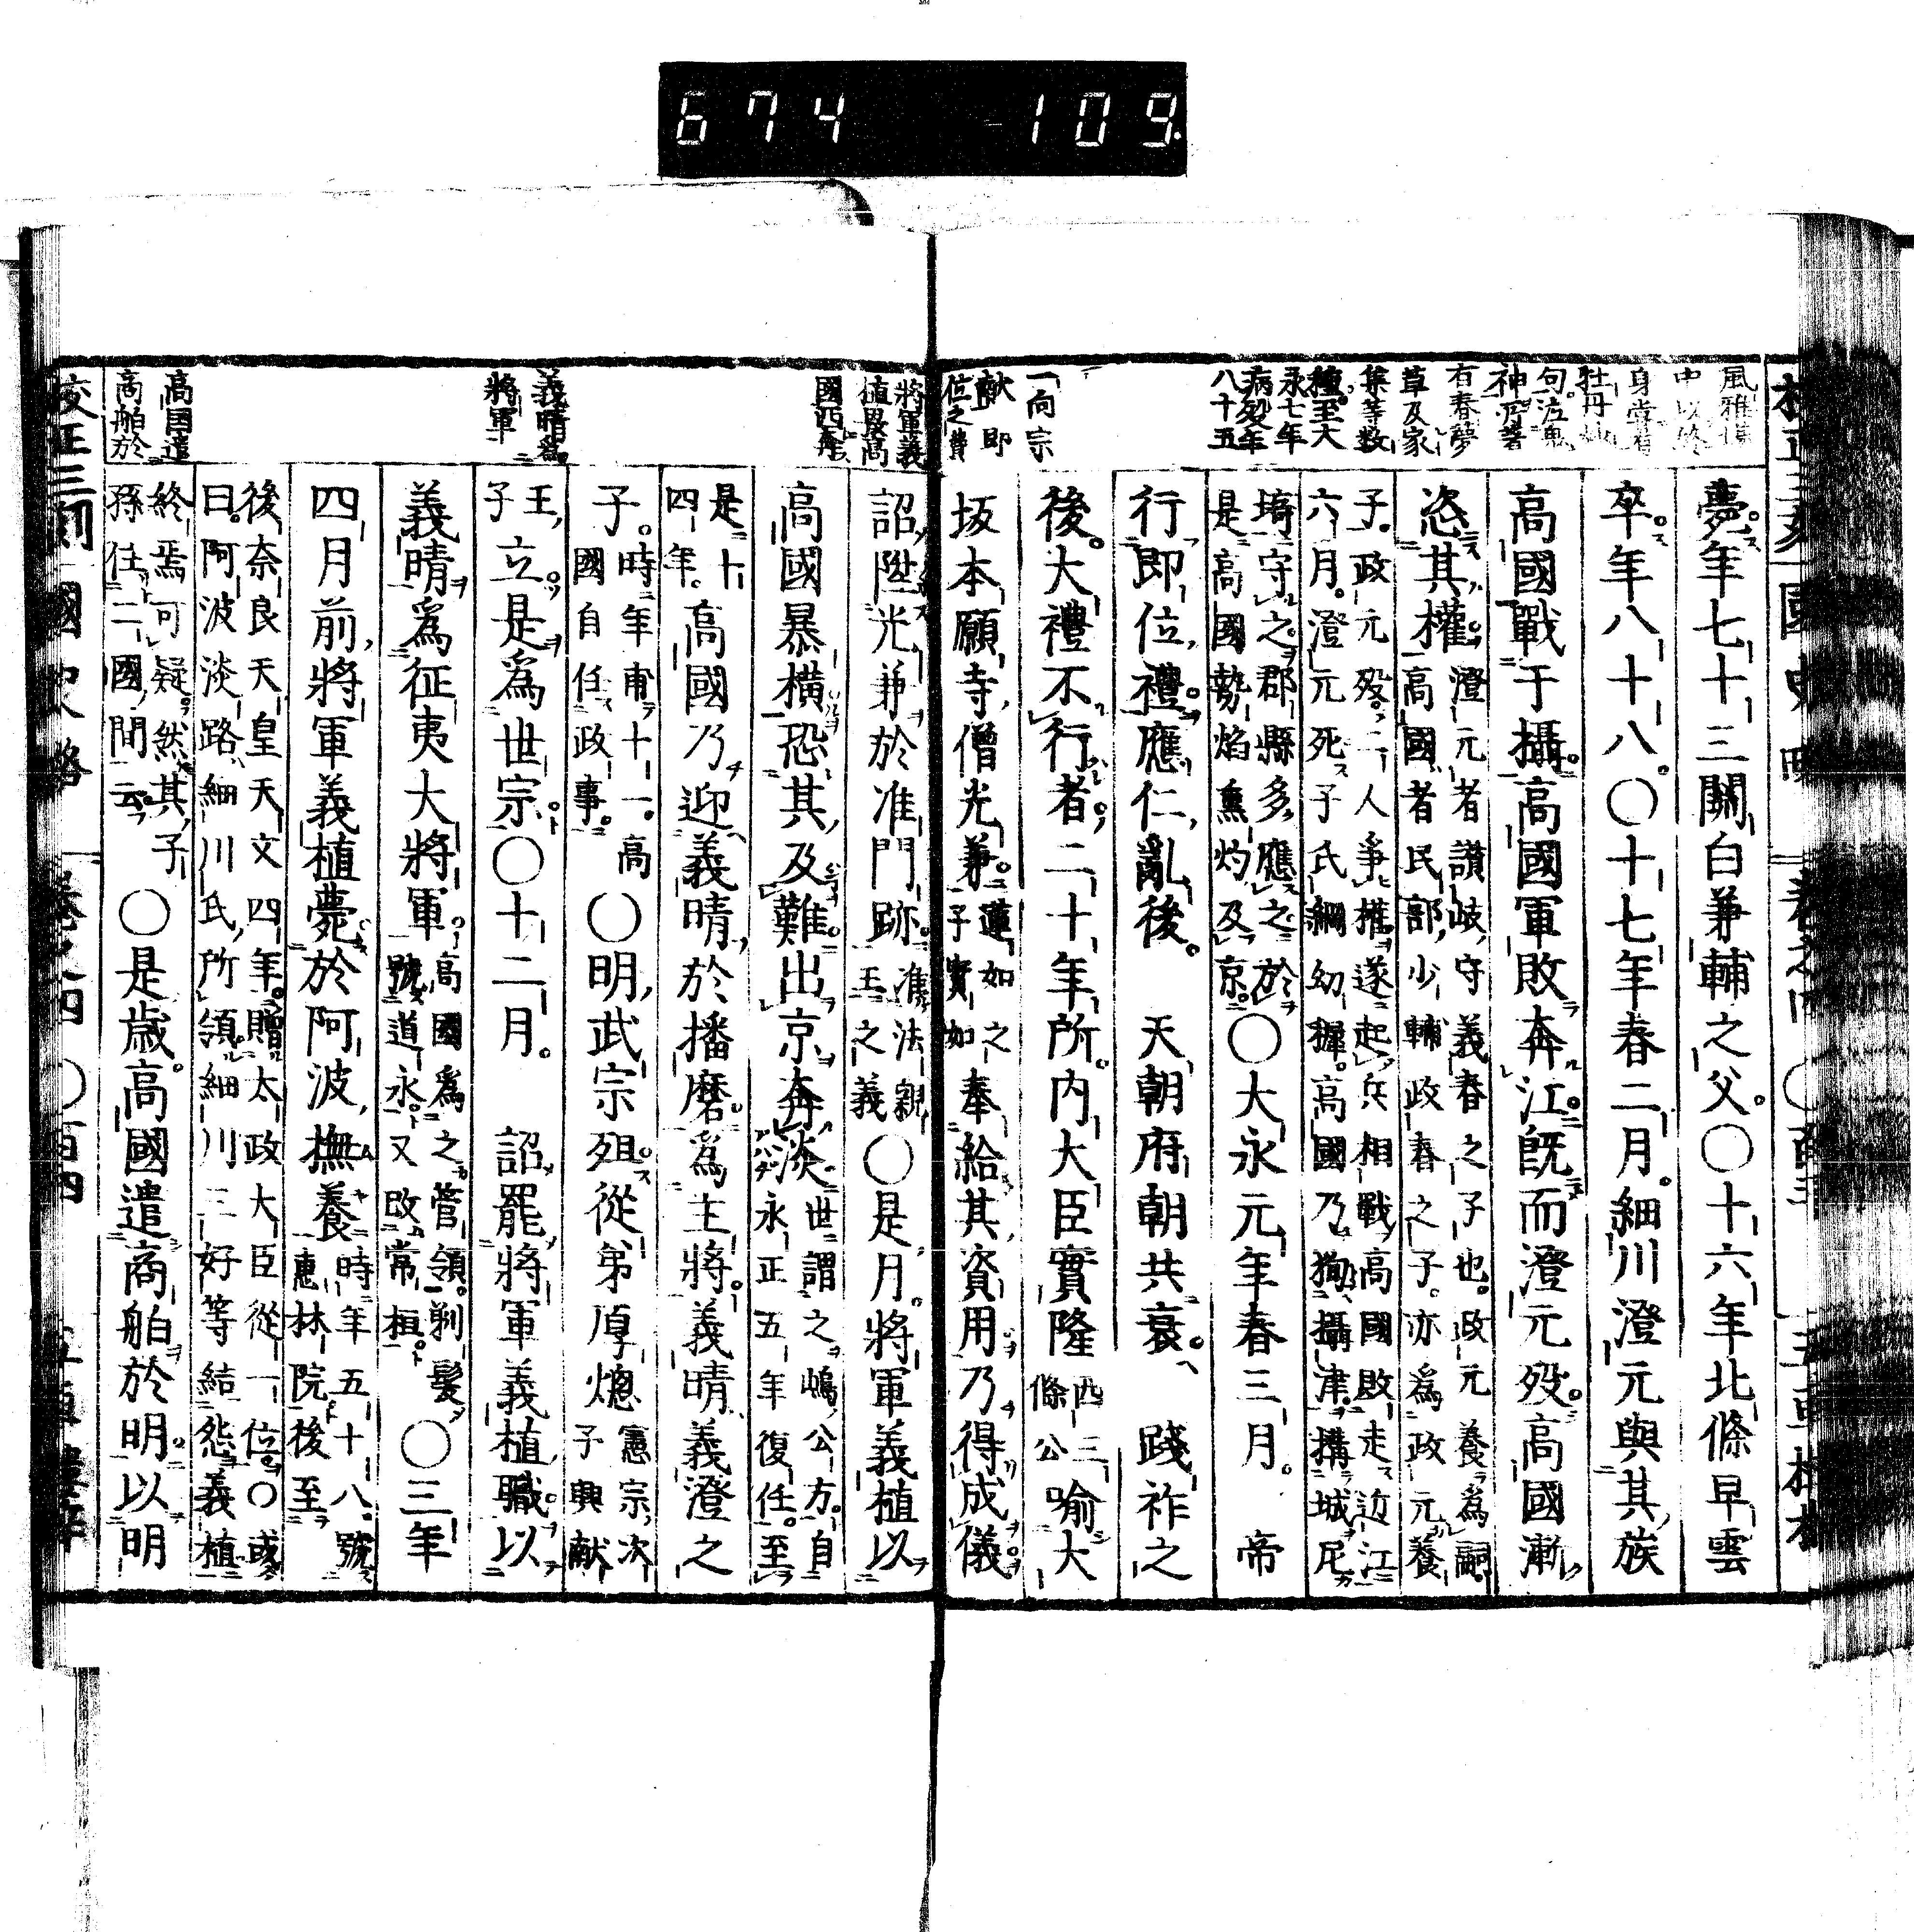 674 109
風雅
中以終
身嘗有
牡丹
句
神乃著
有春夢
草及家
集等数
種至大
永七年
病歿年
八十五
夢年七十三關白兼輔之父〇十六年北條早雲
卒年八十八〇十七年春二月細川澄元與其族
高國戰于攝高國軍敗奔江既而澄元歿高國漸
恣其權
澄元者讃岐守義春之子也政元養爲嗣
高國者民部少輔政春之子亦爲政元養
子政元歿二人爭權遂起兵相戰高國敗走近江
六月澄元死子氏綱幼攉高國乃徇攝津構城尼
埼守之郡縣多應之於
是高國勢焰熏灼及京
〇大永元年春三月 帝
行即位禮應仁亂後 天朝府朝共衰 踐祚之
後大禮不行者二十年所内大臣實隆
西三
條公
喻大
一向宗
献即
位之費
坂本願寺僧光兼
蓮如之
子實如
奉給其資用乃得成儀
詔陞光兼於准門跡
准法親
王之義
〇是月將軍義植以
將軍義
植畏高
國西奔
高國暴橫恐其及難出京奔淡
世謂之嶋公方自
永正五年復任至
是十
四年
高國乃迎義晴於播磨爲主將義晴義澄之
子
時年甫十一高
國自任政事
〇明武宗殂從弟厚熜
憲宗次
子興献
王
子
立是爲世宗〇十二月 詔罷將軍義植職以
義晴爲
將軍
義晴爲征夷大將軍
高國爲之菅領剃髮
號道永又改常桓
〇三年
四月前將軍義植薨於阿波撫養
時年五十八號
惠林院後至
後奈良天皇天文四年贈太政大臣從一位〇或
曰阿波淡路細川氏所領細川三好等結怨義植
終焉可疑然其子
孫任二國間云
〇是歳高國遣商舶於明以明
高國遣
商舶於
校正三刻國史略 卷之四 〇百四